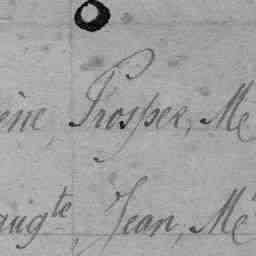 ène, Prosper, Me
augte, Jean, Me